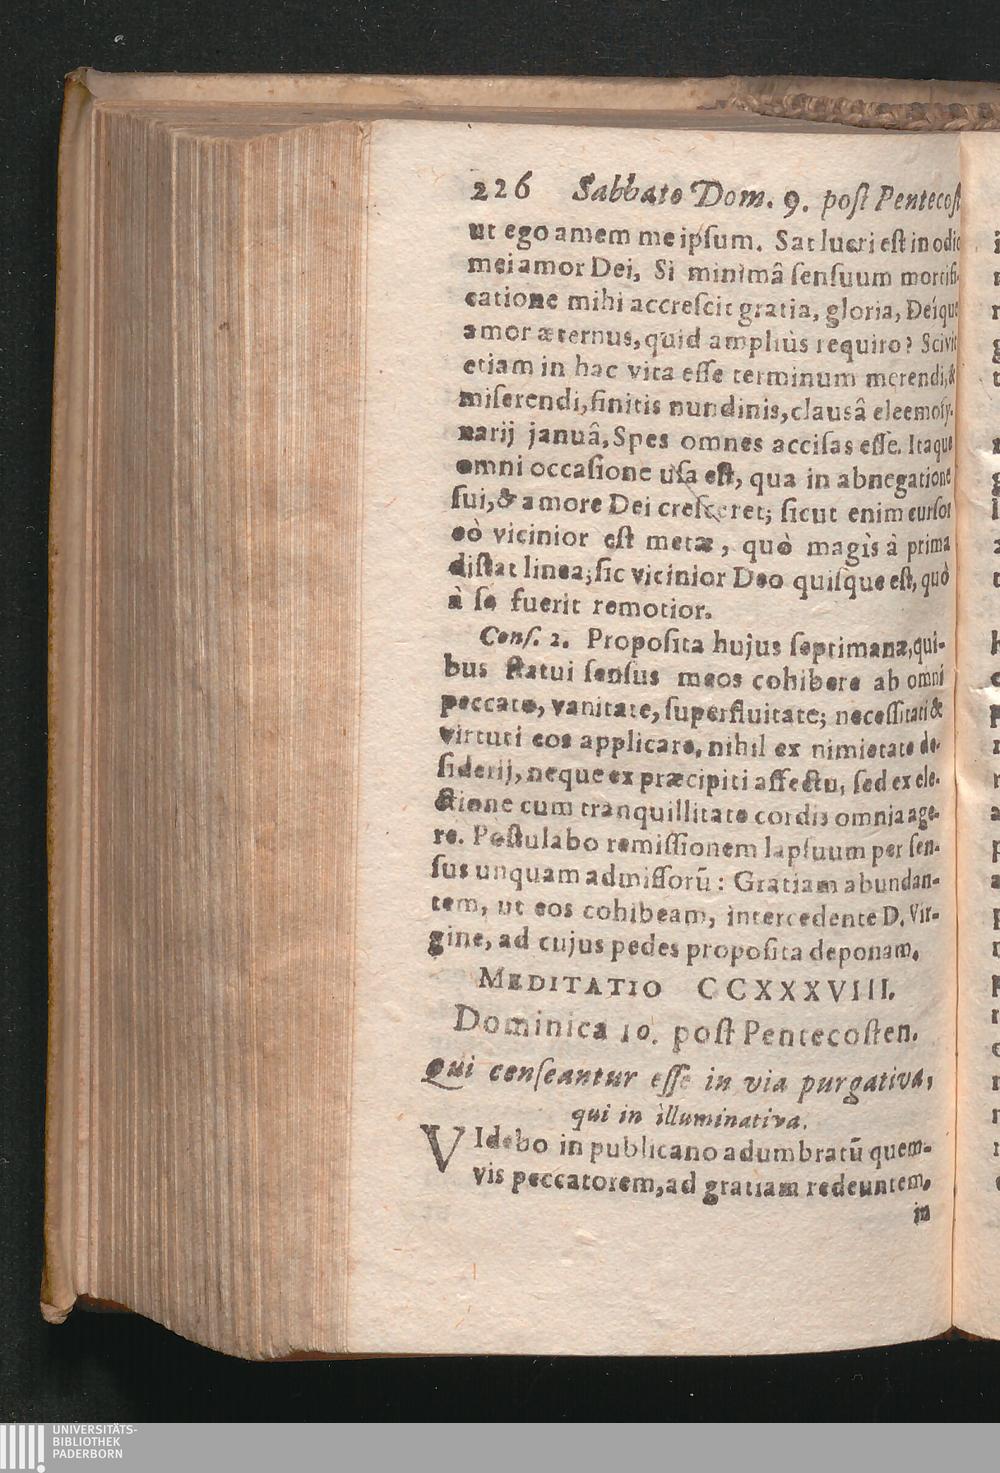 226 Sabbato Dom. 9. post Pentecost
ut ego amem me ipsum. Sat lucri est in odio
mei amor Dei, Si minimâ sensuum mortifi-
catione mihi accrescit gratia, gloria, Deíque
amor æternus, quid ampliùs requiro? Scivit
etiam in hac vita esse terminum merendi, &
miserendi, finitis nundinis, clausâ eleemosy-
narij januâ, Spes omnes accisas esse. Itaque
omni occasione usa est, qua in abnegatione
sui, & amore Dei cresceret; sicut enim cursor
eò vicinior est metæ, quò magis à prima
distat linea; sic vicinior Deo quisque est, quò
à se fuerit remotior.
Cons. 2. Proposita hujus septimanæ, qui-
bus statui sensus meos cohibere ab omni
peccato, vanitate, superfluitate; necessitati &
virtuti eos applicare, nihil ex nimietate de-
siderij, neque ex præcipiti affectu, sed ex ele-
ctione cum tranquillitate cordis omnia age-
re. Postulabo remissionem lapsuum per sen-
sus unquam admissorū: Gratiam abundan-
tem, ut eos cohibeam, intercedente D. Vir-
gine, ad cujus pedes proposita deponam.
MEDITATIO CCXXXVIII.
Dominica 10. post Pentecosten.
Qui censeantur esse in via purgativa,
qui in illuminativa.
VIdebo in publicano adumbratū quem-
vis peccatorem, ad gratiam redeuntem,
in
UNIVERSITÄTS-
BIBLIOTHEK
PADERBORN